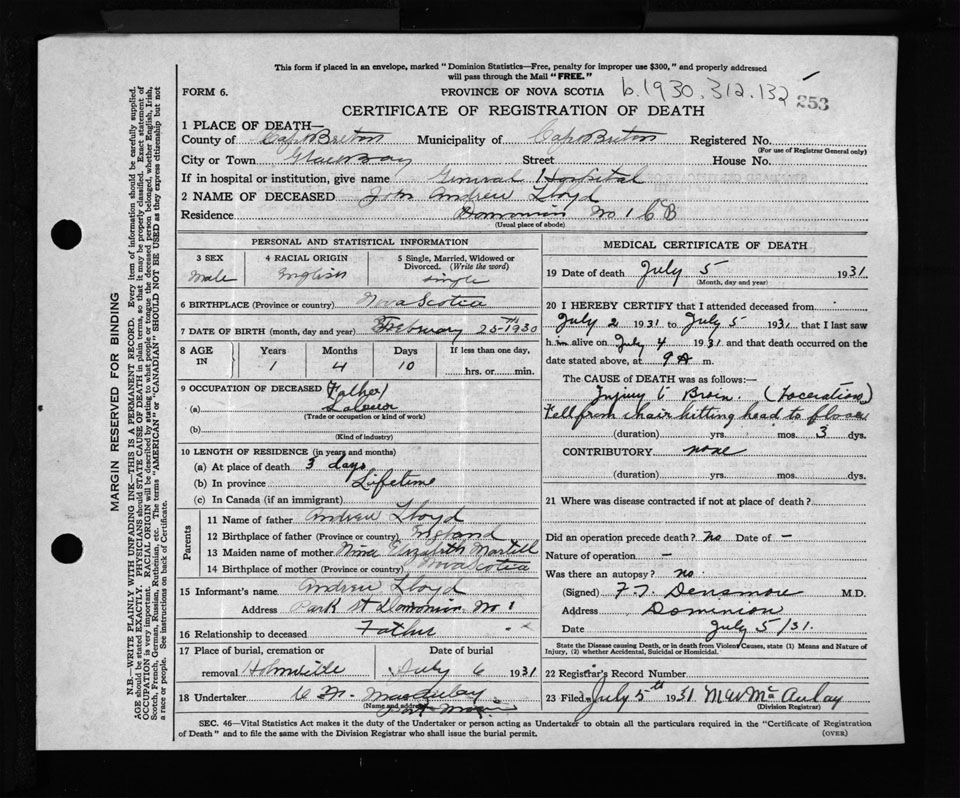 This form if placed in an envelope, marked "Dominion Statistics—Free, penalty for improper use $300," and properly addressed
will pass through the Mail "FREE."
FORM 6. PROVINCE OF NOVA SCOTIA b.1930.312.132 253
CERTIFICATE OF REGISTRATION OF DEATH
1 PLACE OF DEATH—
County of Cape Breton Municipality of Cape Breton Registered No.
(For use of Registrar General only)
City or Town Glace Bay Street House No.
If in hospital or institution, give name General Hospital
2 NAME OF DECEASED John Andrew Lloyd
Residence Dominion No 1 CB
(Usual place of abode)
PERSONAL AND STATISTICAL INFORMATION
3 SEX 4 RACIAL ORIGIN 5 Single, Married, Widowed or Divorced. (Write the word)
Male English Single
6 BIRTHPLACE (Province or country) Nova Scotia
7 DATE OF BIRTH (month, day and year) February 25th 1930
8 AGE IN Years Months Days If less than one day,
1 4 10 hrs. or min.
9 OCCUPATION OF DECEASED (Father)
(a) Laborer
(Trade or occupation or kind of work)
(b)
(Kind of industry)
10 LENGTH OF RESIDENCE (in years and months)
(a) At place of death 3 days
(b) In province Lifetime
(c) In Canada (if an immigrant)
Parents
11 Name of father Andrew Lloyd
12 Birthplace of father (Province or country) England
13 Maiden name of mother Elizabeth Martell
14 Birthplace of mother (Province or country) Nova Scotia
15 Informant's name Andrew Lloyd
Address Park St Dominion No 1
16 Relationship to deceased Father
17 Place of burial, cremation or Date of burial
removal July 6 1931
18 Undertaker
(Name and address)
MEDICAL CERTIFICATE OF DEATH
19 Date of death July 5 1931
(Month, day and year)
20 I HEREBY CERTIFY that I attended deceased from
July 2 1931 to July 5 1931 that I last saw
him alive on July 4 1931 and that death occurred on the
date stated above, at 9 A m.
The CAUSE OF DEATH was as follows:—
Injury to Brain. (Laceration)
Fell from chair hitting head to floor
(duration) yrs. mos. 3 dys.
CONTRIBUTORY none
(duration) yrs. mos. dys.
21 Where was disease contracted if not at place of death?
Did an operation precede death? no Date of –
Nature of operation –
Was there an autopsy? no
(Signed) F. T. Densmore M.D.
Address Dominion
Date July 5/31.
State the Disease causing Death, or in death from Violent Causes, state (1) Means and Nature of
Injury, (2) whether Accidental, Suicidal or Homicidal.
22 Registrar's Record Number
23 Filed July 5th 1931 McAulay
(Division Registrar)
SEC. 46—Vital Statistics Act makes it the duty of the Undertaker or person acting as Undertaker to obtain all the particulars required in the "Certificate of Registration
of Death" and to file the same with the Division Registrar who shall issue the burial permit. (OVER)
MARGIN RESERVED FOR BINDING
N.B.—WRITE PLAINLY WITH UNFADING INK—THIS IS A PERMANENT RECORD. Every item of information should be carefully supplied.
AGE should be stated EXACTLY. PHYSICIANS should STATE CAUSE OF DEATH in plain terms, so that it may be properly classified. Exact statement of
OCCUPATION is very important. RACIAL ORIGIN will be described by stating to what people or tongue the deceased person belonged, whether English, Irish,
Scotch, French, German, Russian, Ruthenian, etc. The terms "AMERICAN" or "CANADIAN" SHOULD NOT BE USED as they express citizenship but not
a race or people. See instructions on back of Certificate.